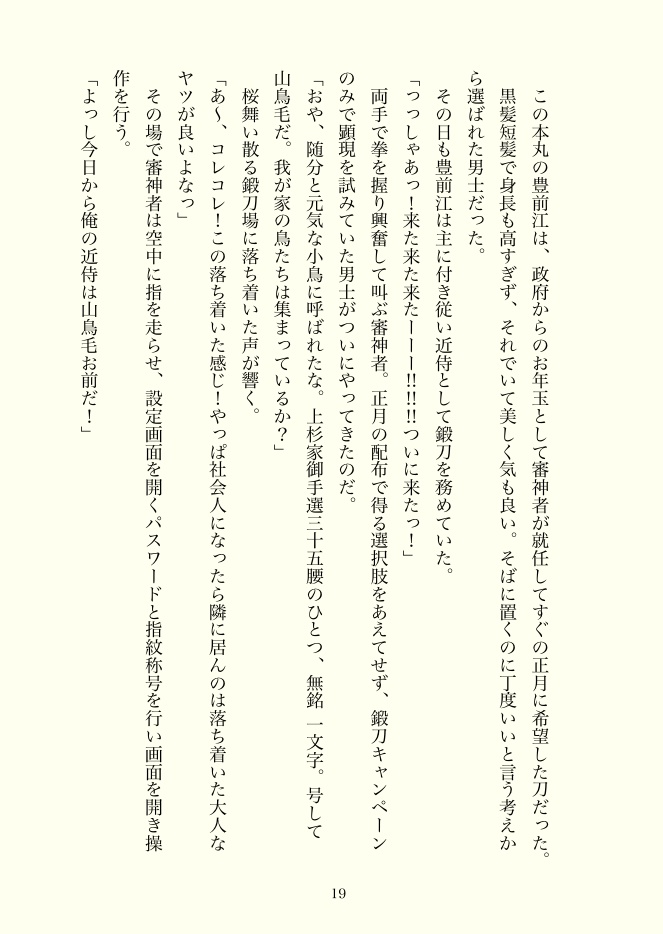 この本丸の豊前江は、政府からのお年玉として審神者が就任してすぐの正月に希望した刀だった。
黒髪短髪で身長も高すぎず、それでいて美しく気も良い。そばに置くのに丁度いいと言う考えか
ら選ばれた男士だった。
その日も豊前江は主に付き従い近侍として鍛刀を務めていた。
「っっしゃあっ！来た来た来たーーー!!!!!!ついに来たっ！」
両手で拳を握り興奮して叫ぶ審神者。正月の配布で得る選択肢をあえてせず、鍛刀キャンペーン
のみで顕現を試みていた男士がついにやってきたのだ。
「おや、随分と元気な小鳥に呼ばれたな。上杉家御手選三十五腰のひとつ、無銘一文字。号して
山鳥毛だ。我が家の鳥たちは集まっているか？」
桜舞い散る鍛刀場に落ち着いた声が響く。
「あ～、コレコレ！この落ち着いた感じ！やっぱ社会人になったら隣に居んのは落ち着いた大人な
ヤツが良いよなっ」
その場で審神者は空中に指を走らせ、設定画面を開くパスワードと指紋称号を行い画面を開き操
作を行う。
「よっし今日から俺の近侍は山鳥毛お前だ！」
19